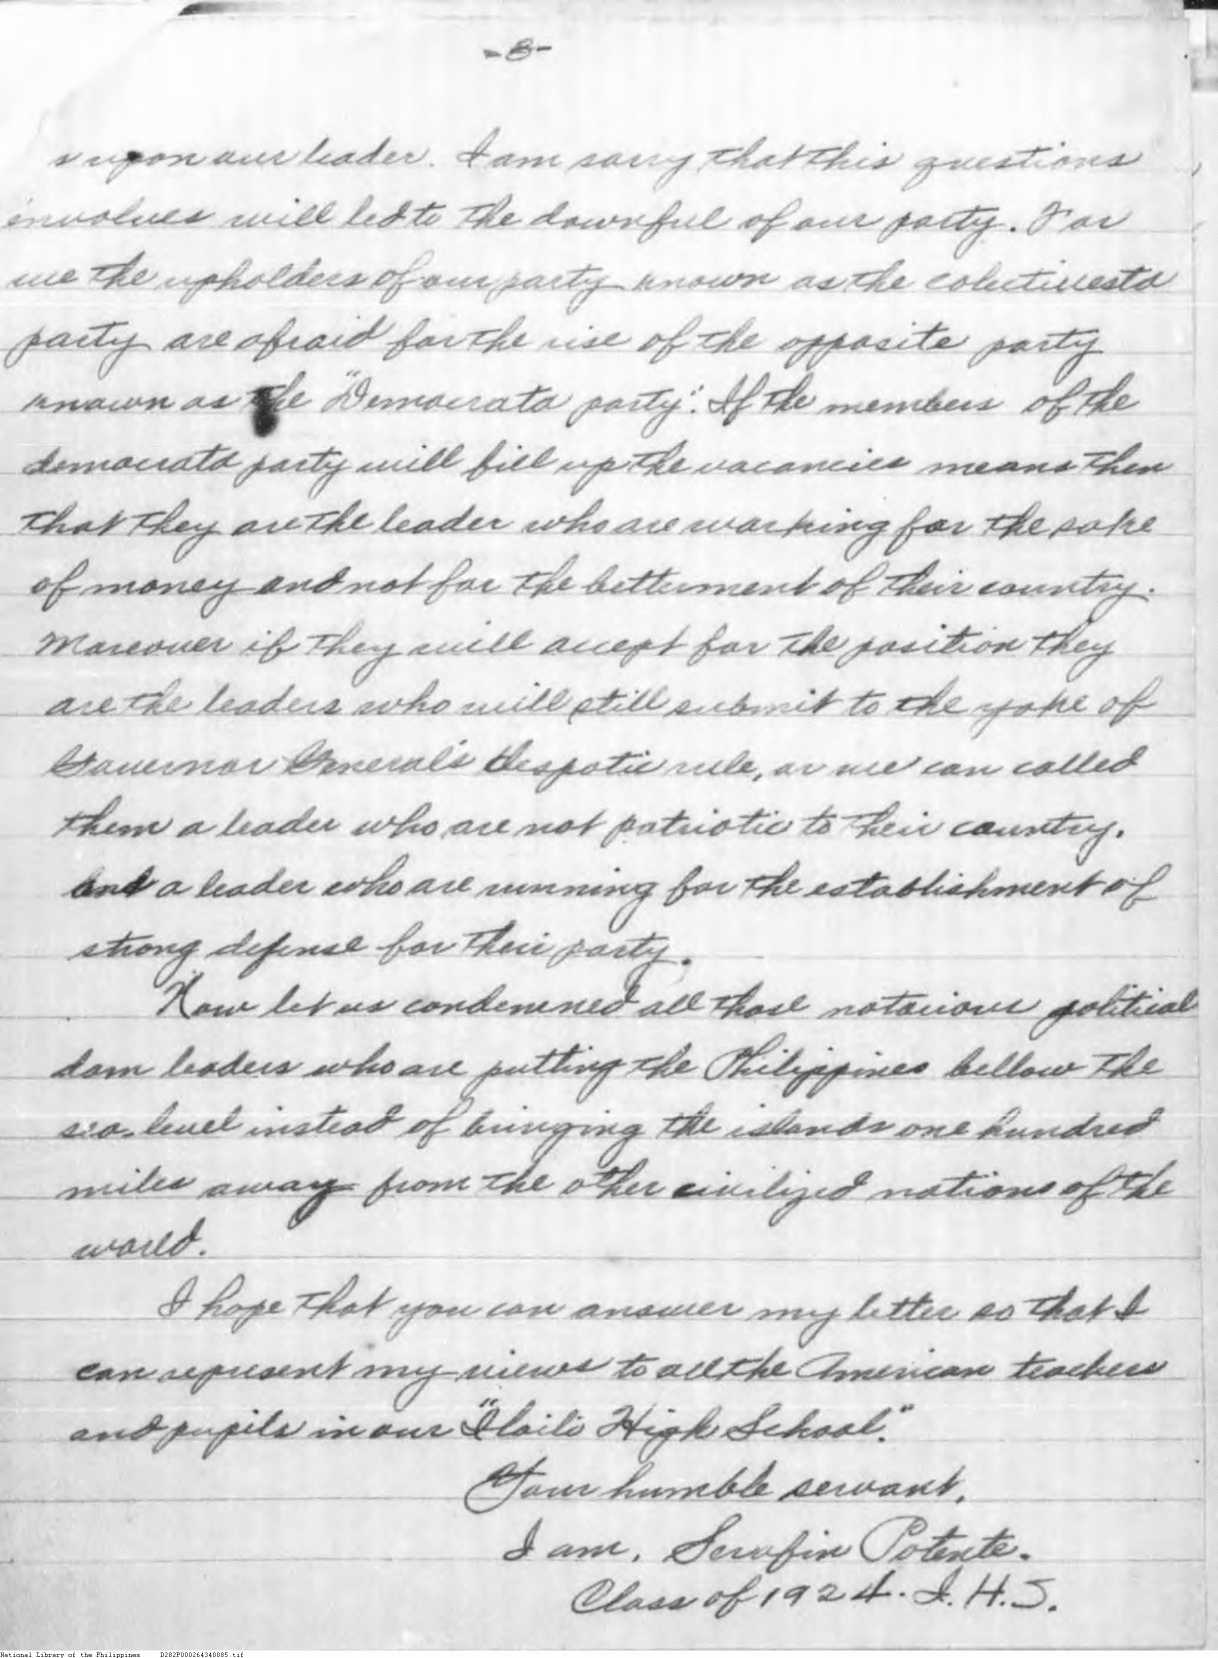 -8-
s upon our leader. I am sorry that this questions
envolves will led to the downful of our party. For
me the upholders of our party known as the colectivesta
party are afraid for the rise of the opposite party
known as the "Democrata party". If the members of the
democrata party will fill up the vacancies means then
that they are the leader who are working for the sake
of money and not for the betterment of their country.
Moreover if they will accept for the position they
are the leaders who will still submit to the yoke of
Governor General's despotic rule, or we can called
them a leader who are not patriotic to their country.
And a leader who are running for the establishment of
strong defense for their party.
Now let us condemned all those notorious political
dam leaders who are putting the Philippines bellow the
sea-level instead of bringing the islands one hundred
miles away from the other civilized nations of the
world.
I hope that you can answer my letter so that I
can represent my views to all the American teachers
and pupils in our "Iloilo High School."
Your humble servant,
I am, Serafin Potente.
Class of 1924. I. H. S.
National Library of the Philippines D282P000264340085.tif